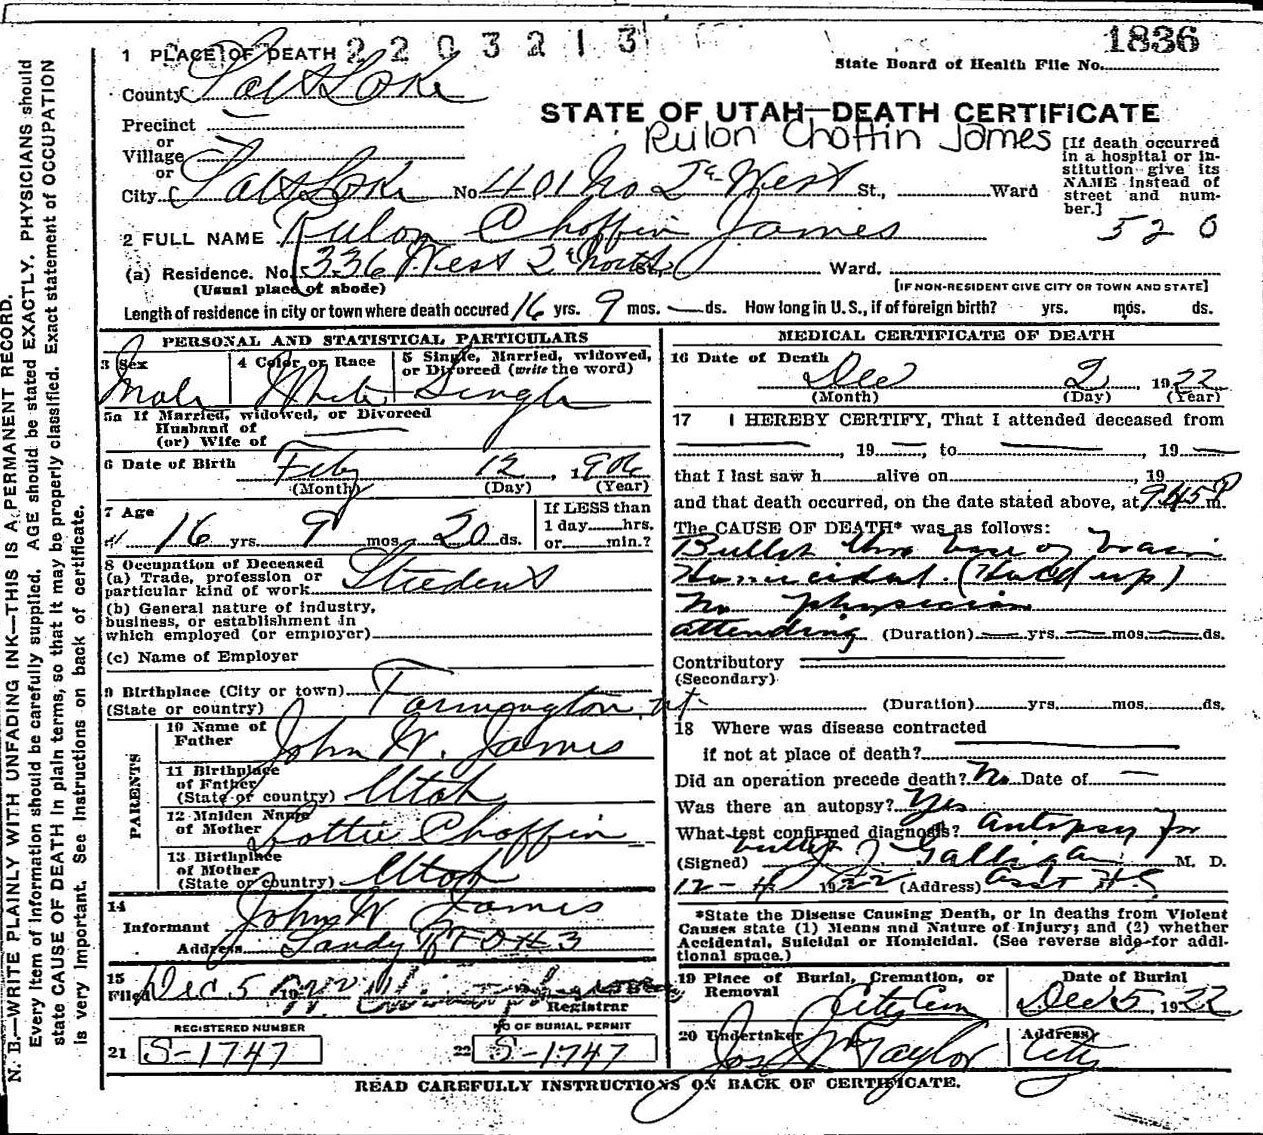 2203213
1836
1 PLACE OF DEATH
State Board of Health File No.
County Salt Lake
STATE OF UTAH—DEATH CERTIFICATE
Rulon Choffin James
Precinct
or
Village
or
City Salt Lake No. 401 No 2nd West St., Ward
[If death occurred in a hospital or institution give its NAME instead of street and number.]
520
2 FULL NAME Rulon Choffin James
(a) Residence. No. 336 West 2nd North St. Ward.
(Usual place of abode)
[IF NON-RESIDENT GIVE CITY OR TOWN AND STATE]
Length of residence in city or town where death occured 16 yrs. 9 mos. — ds. How long in U.S., if of foreign birth? yrs. mos. ds.
PERSONAL AND STATISTICAL PARTICULARS
3 Sex Male
4 Color or Race White
5 Single, Married, widowed, or Divorced (write the word) Single
5a If Married, widowed, or Divorced
Husband of
(or) Wife of
6 Date of Birth Feby 12, 1906
(Month) (Day) (Year)
7 Age 16 yrs. 9 mos. 20 ds.
If LESS than
1 day hrs.
or min.?
8 Occupation of Deceased
(a) Trade, profession or
particular kind of work Student
(b) General nature of industry,
business, or establishment in
which employed (or employer)
(c) Name of Employer
9 Birthplace (City or town) Farmington, Ut
(State or country)
PARENTS
10 Name of Father John W. James
11 Birthplace of Father (State or country) Utah
12 Maiden Name of Mother Lottie Choffin
13 Birthplace of Mother (State or country) Utah
14
Informant John W James
Address Sandy R F D # 3
15
Filed Dec 5 19
Registrar
REGISTERED NUMBER
21 S-1747
NO OF BURIAL PERMIT
22 S-1747
MEDICAL CERTIFICATE OF DEATH
16 Date of Death Dec 2, 1922
(Month) (Day) (Year)
17 I HEREBY CERTIFY, That I attended deceased from
, 19 —, to , 19 —
that I last saw h alive on , 19
and that death occurred, on the date stated above, at 9.45 P m.
The CAUSE OF DEATH* was as follows:
Bullet thro base of brain
Homicidal. (Hold up)
No physician
attending (Duration) — yrs. — mos. — ds.
Contributory
(Secondary)
(Duration) yrs. mos. ds.
18 Where was disease contracted
if not at place of death?
Did an operation precede death? No Date of —
Was there an autopsy? Yes
What test confirmed diagnosis? Autopsy for
bullet
(Signed) J J Galligan M. D.
12-4 1922 (Address) Asst H.C.
*State the Disease Causing Death, or in deaths from Violent
Causes state (1) Means and Nature of Injury; and (2) whether
Accidental, Suicidal or Homicidal. (See reverse side for addi-
tional space.)
19 Place of Burial, Cremation, or Removal City Cem
Date of Burial Dec 5, 1922
20 Undertaker Jos Wm Taylor
Address City
READ CAREFULLY INSTRUCTIONS ON BACK OF CERTIFICATE.
N. B.—WRITE PLAINLY WITH UNFADING INK—THIS IS A PERMANENT RECORD.
Every item of information should be carefully supplied. AGE should be stated EXACTLY. PHYSICIANS should
state CAUSE OF DEATH in plain terms, so that it may be properly classified. Exact statement of OCCUPATION
is very important. See Instructions on back of certificate.